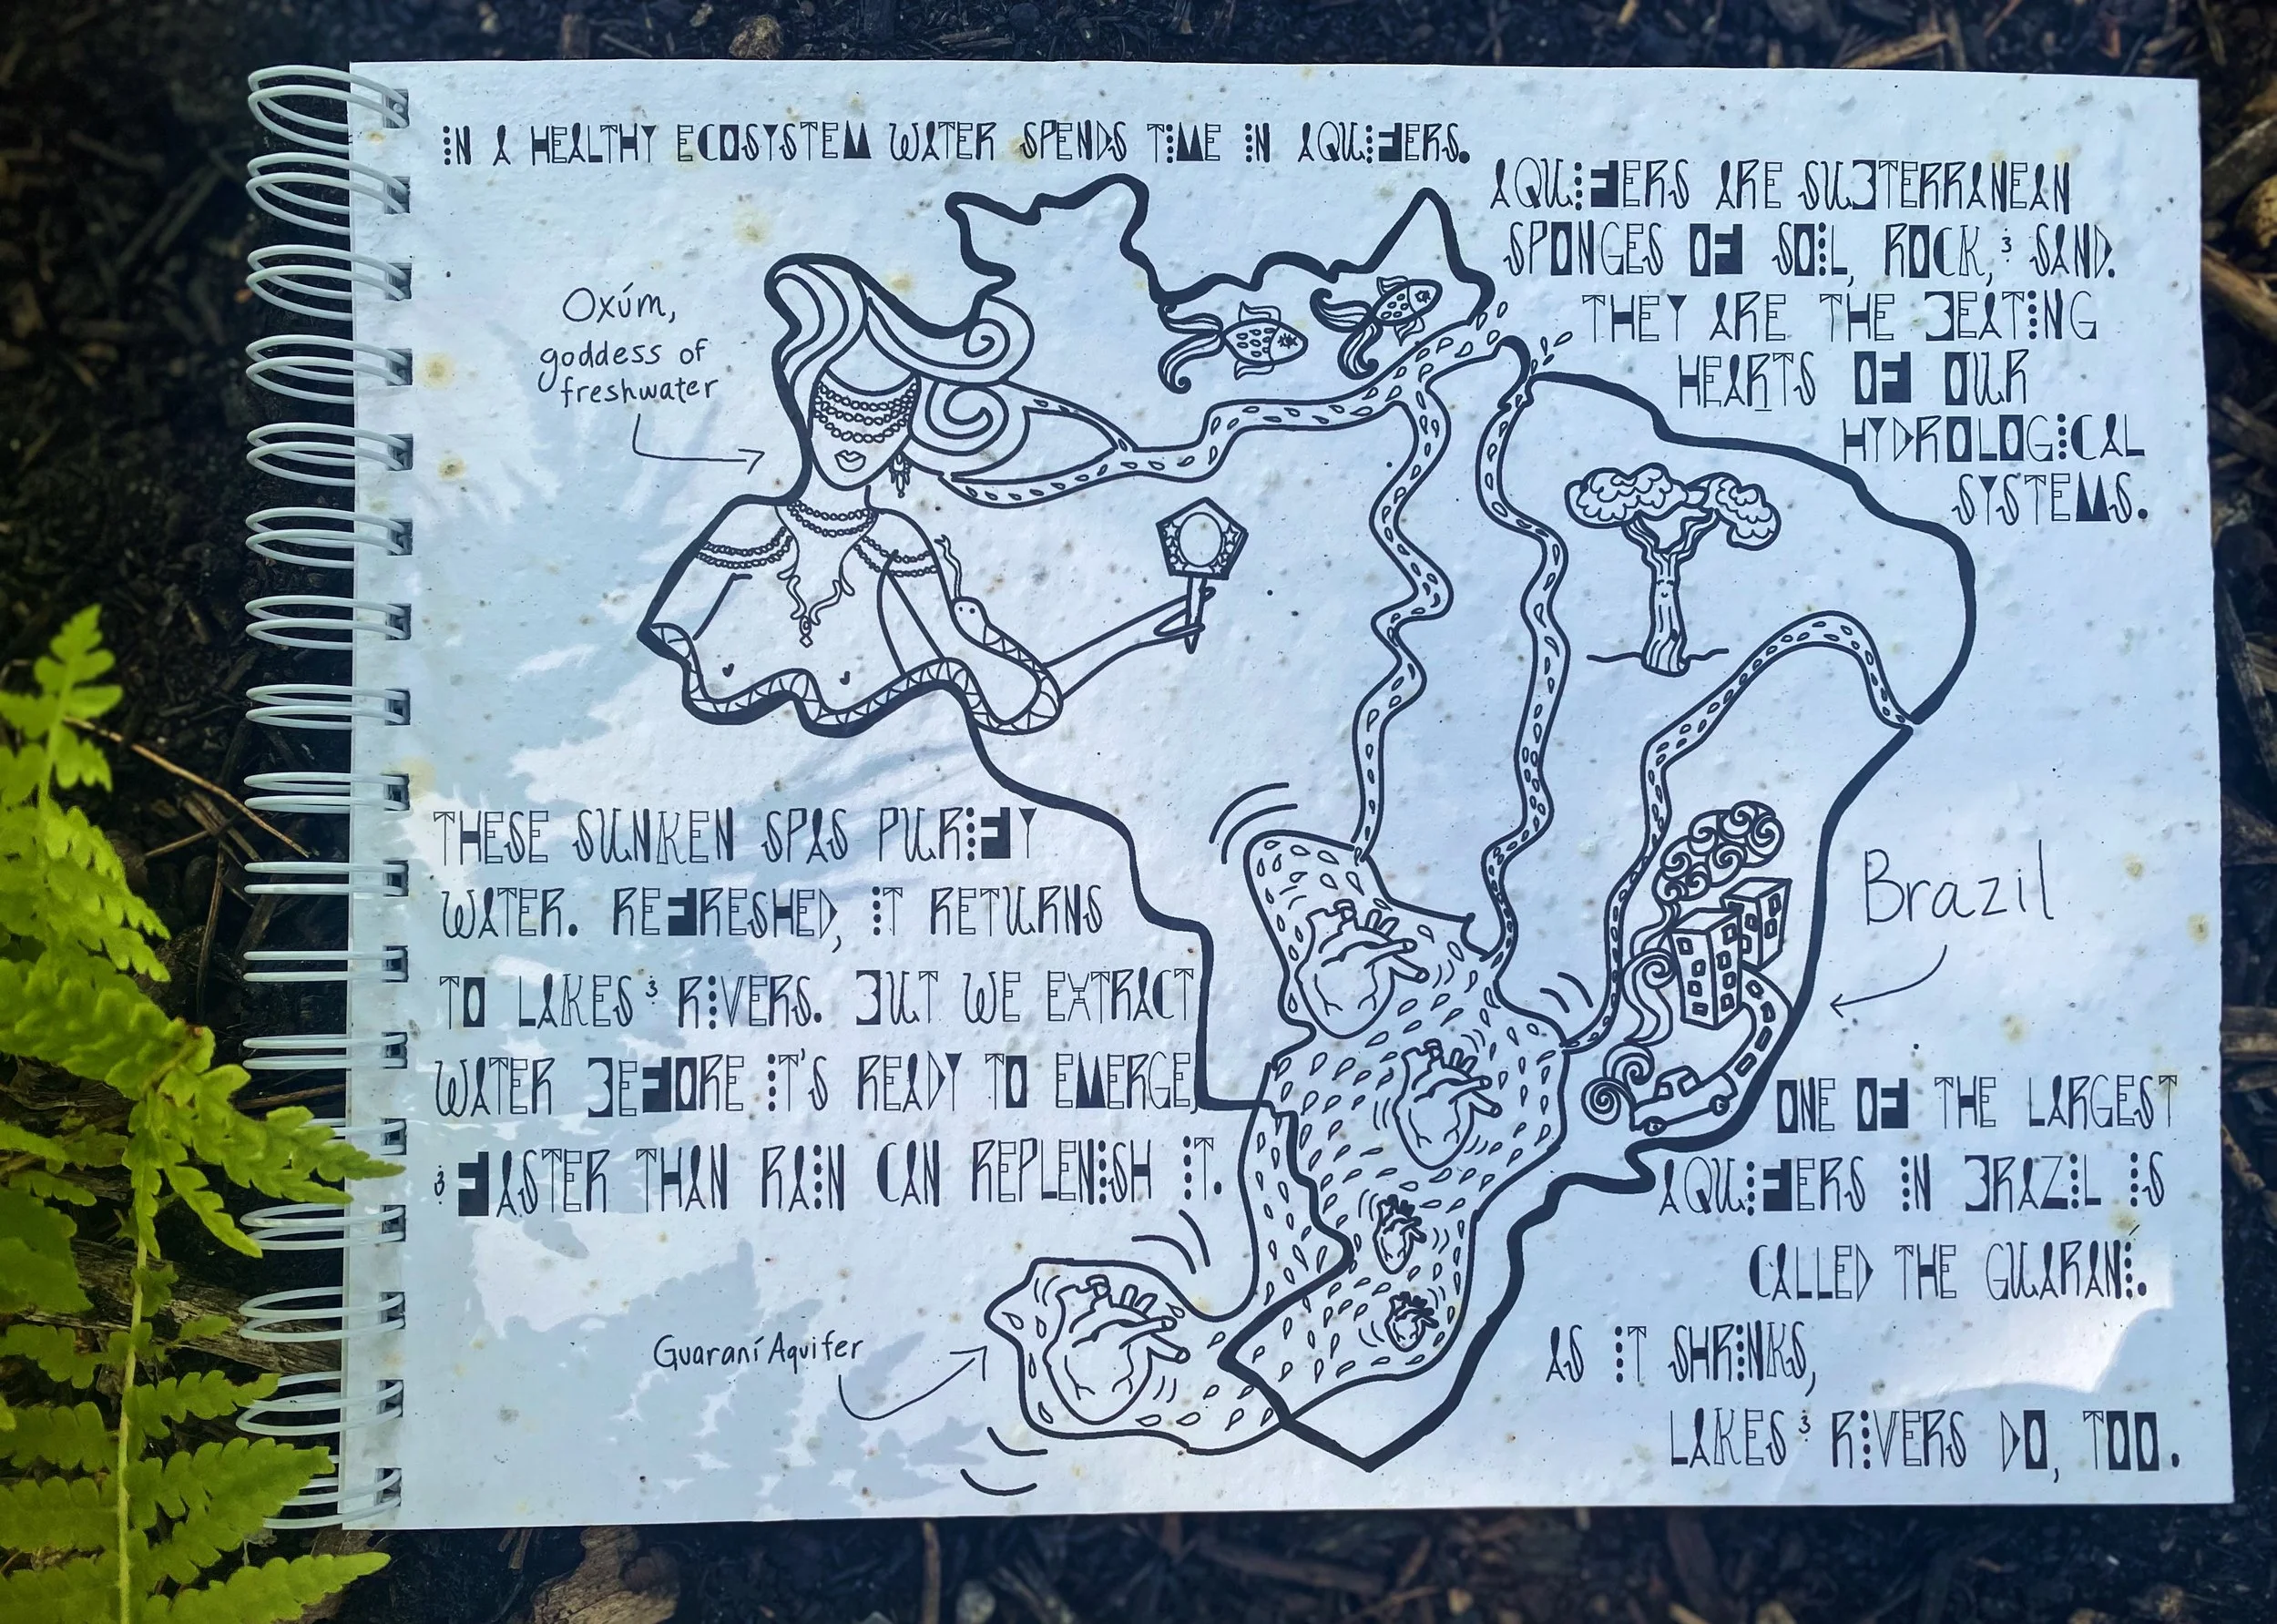 IN A HEALTHY ECOSYSTEM WATER SPENDS TIME IN AQUIFERS.
AQUIFERS ARE SUBTERRANEAN
SPONGES OF SOIL, ROCK, & SAND.
THEY ARE THE BEATING
HEARTS OF OUR
HYDROLOGICAL
SYSTEMS.
Oxúm,
goddess of
freshwater
THESE SUNKEN SPAS PURIFY
WATER. REFRESHED, IT RETURNS
TO LAKES & RIVERS. BUT WE EXTRACT
WATER BEFORE IT'S READY TO EMERGE,
& FASTER THAN RAIN CAN REPLENISH IT.
Brazil
Guaraní Aquifer
ONE OF THE LARGEST
AQUIFERS IN BRAZIL IS
CALLED THE GUARANÍ.
AS IT SHRINKS,
LAKES & RIVERS DO, TOO.